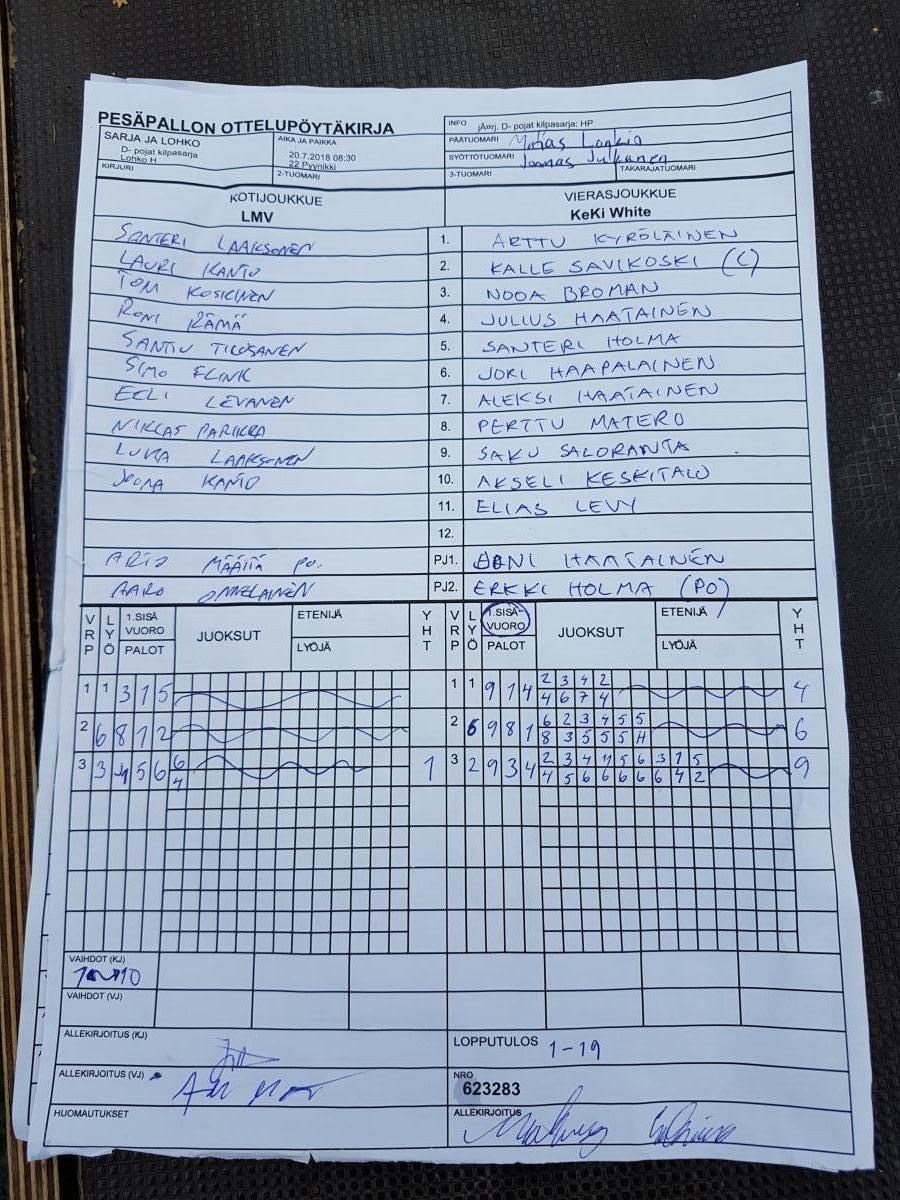 PESÄPALLON OTTELUPÖYTÄKIRJA
SARJA JA LOHKO
D- pojat kilpasarja
Lohko H
AIKA JA PAIKKA
20.7.2018 08:30
22 Pyynikki
INFO jÄorj. D- pojat kilpasarja: HP
PÄÄTUOMARI
SYÖTTÖTUOMARI Joonas Julkunen
KIRJURI 2-TUOMARI 3-TUOMARI TAKARAJATUOMARI
KOTIJOUKKUE VIERASJOUKKUE
LMV KeKi White
SANTERI LAAKSONEN 1. ARTTU KYRÖLÄINEN
LAURI KANTO 2. KALLE SAVIKOSKI (C)
TOM KOSKINEN 3. NOOA BROMAN
RONI RÄMÄ 4. JULIUS HAATAINEN
SANTTU TILOSANEN 5. SANTERI HOLMA
SIMO FLINK 6. JOKI HAAPALAINEN
EELI LEVANEN 7. ALEKSI HAATAINEN
NIKLAS PARIKKA 8. PERTTU MATERO
LUKA LAAKSONEN 9. SAKU SALORANTA
JOONA KANTO 10. AKSELI KESKITALO
11. ELIAS LEVY
12.
MÄÄTTÄ PO. PJ1. HAATAINEN
AARO ONNELAINEN PJ2. ERKKI HOLMA (PO)
VRP LYÖ 1.SISÄ VUORO PALOT JUOKSUT ETENIJÄ LYÖJÄ YHT VRP LYÖ 1.SISÄ-VUORO PALOT JUOKSUT ETENIJÄ LYÖJÄ YHT
1 1 3 1 5 1 1 9 1 4 2 3 4 2 4
4 6 7 4
2 6 8 1 2 2 6 9 8 1 6 2 3 4 5 5 6
8 3 5 5 5 H
3 3 4 5 6 6 1 3 2 9 3 4 2 3 4 11 5 6 3 1 5 9
4 4 5 6 6 6 6 6 4 2
VAIHDOT (KJ)
VAIHDOT (VJ)
ALLEKIRJOITUS (KJ) LOPPUTULOS 1-19
ALLEKIRJOITUS (VJ) NRO
623283
HUOMAUTUKSET ALLEKIRJOITUS